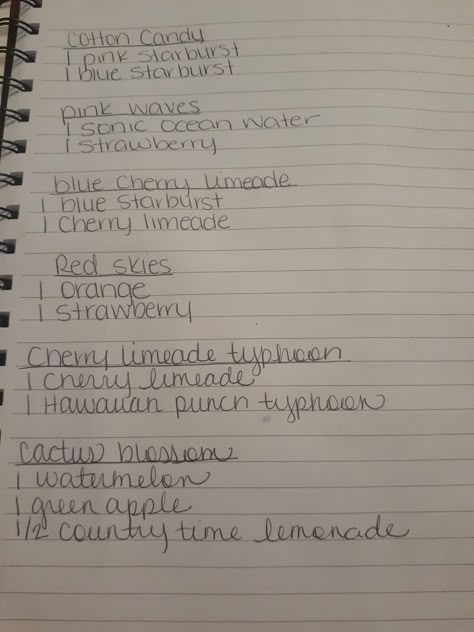 Cotton Candy
1 pink Starburst
1 blue Starburst
pink waves
1 Sonic Ocean Water
1 Strawberry
blue Cherry Limeade
1 blue Starburst
1 Cherry limeade
Red skies
1 Orange
1 Strawberry
Cherry limeade typhoon
1 Cherry limeade
1 Hawaiian punch typhoon
Cactus blossom
1 watermelon
1 green apple
1/2 Country time lemonade